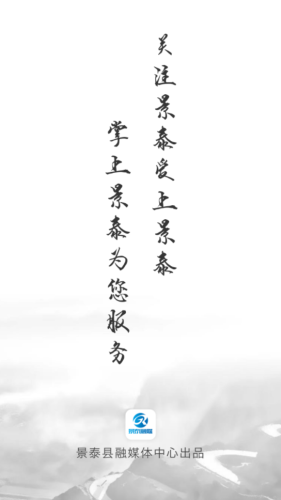 关注景泰爱上景泰
掌上景泰为您服务
景泰县融媒体中心出品